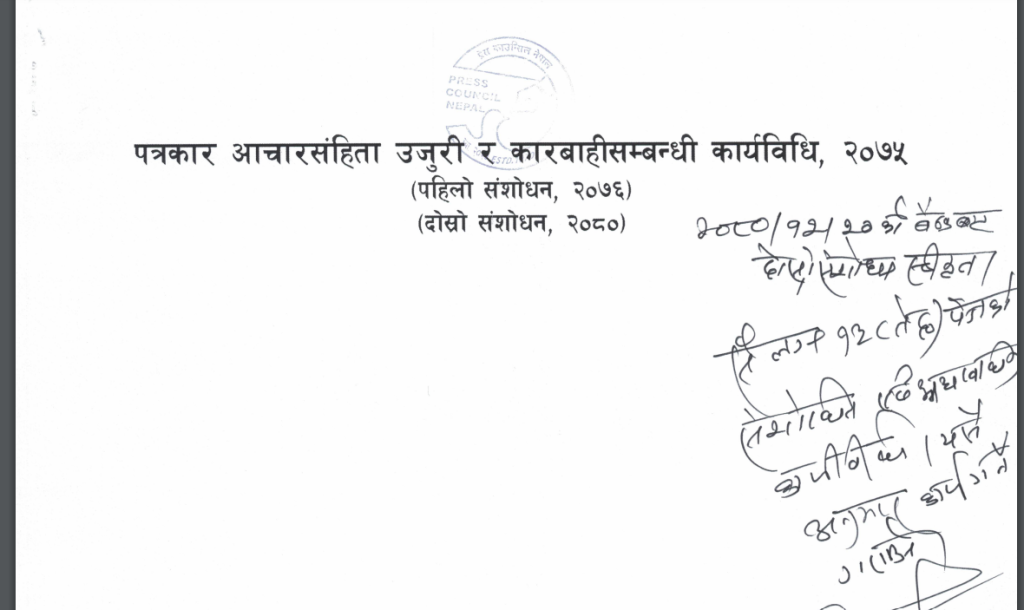 प्रेस काउन्सिल नेपाल
PRESS
COUNCIL
NEPAL
पत्रकार आचारसंहिता उजुरी र कारबाहीसम्बन्धी कार्यविधि, २०७५
(पहिलो संशोधन, २०७६)
(दोस्रो संशोधन, २०८०)
२०८०/१२/२० को बैठकबाट
दोस्रो संशोधन स्वीकृत।
१३ (तेह्र) पेजको
कार्यविधि। यसै
अनुसार कार्य गर्ने